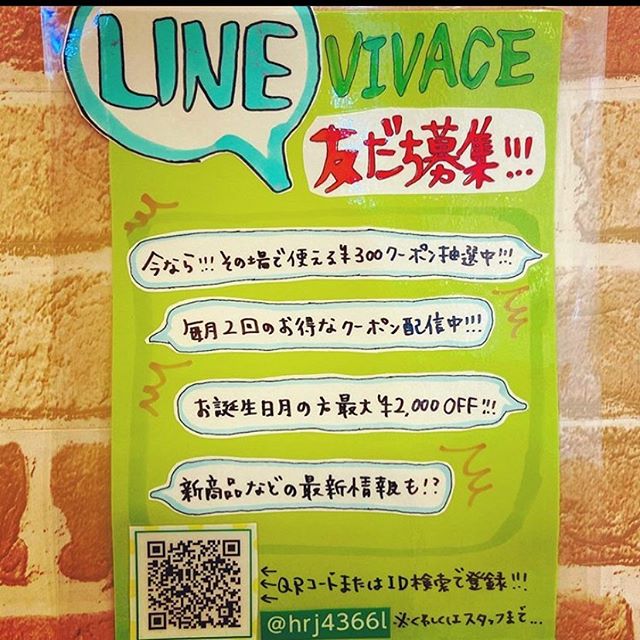 LINE VIVACE
友だち募集!!!
今なら!!! その場で使える¥300クーポン抽選中!!!
毎月2回のお得なクーポン配信中!!!
お誕生日月の方最大¥2,000 OFF!!!
新商品などの最新情報も!?
←QRコードまたはID検索で登録!!!
@hrj4366l ※くわしくはスタッフまで...